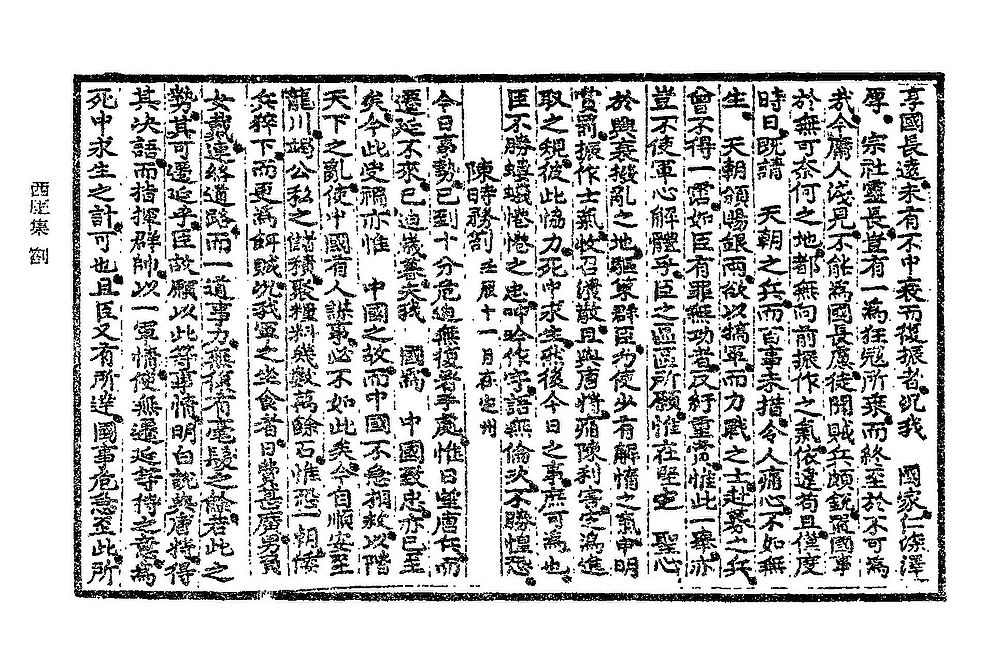 享國長遠未有不中衰而復振者況我 國家仁深澤
厚 宗社靈長豈有一爲狂寇所乘而終至於不可爲
哉今庸人淺見不能爲國長慮徒聞賊兵頗銳國事
於無可奈何之地都無向前振作之氣依違苟且僅度
時日旣請 天朝之兵而百事未措令人痛心不如無
生 天朝頒賜銀兩欲以犒軍而力戰之士赴募之兵
曾不得一霑如臣有罪無功者反紆重賚惟此一擧亦
豈不使軍心解體乎臣之區區所願惟在堅定 聖心
於興衰撥亂之地驅策群臣勿使少有解惰之氣申明
賞罰振作士氣收召潰散且與唐將預陳利害定爲進
取之䂓彼此恊力死中求生然後今日之事庶可爲也
臣不勝螻蟻惓惓之忠呻吟作字語無倫次不勝惶恐
陳時務箚 壬辰十一月在定州
今日事勢已到十分危迫無復着手處惟日望唐兵而
遷延不來已迫歲暮矣我 國爲 中國效忠亦已至
矣今此受禍亦惟 中國之故而中國不急相救以階
天下之亂使中國有人謀事必不如此矣今自順安至
龍川竭公私之儲積聚糧料幾數萬餘石惟恐一朝倭
兵猝下而更爲餌賊況我軍之坐食者日費甚廣男負
女戴連絡道路而一道事力無復有毫髮之餘若此之
勢其可遷延乎臣故願以此等事情明白說與唐將得
其决語而指揮群帥以一軍情使無遷延等待之意爲
死中求生之計可也且臣又有所達國事危急至此所
西厓集 箚